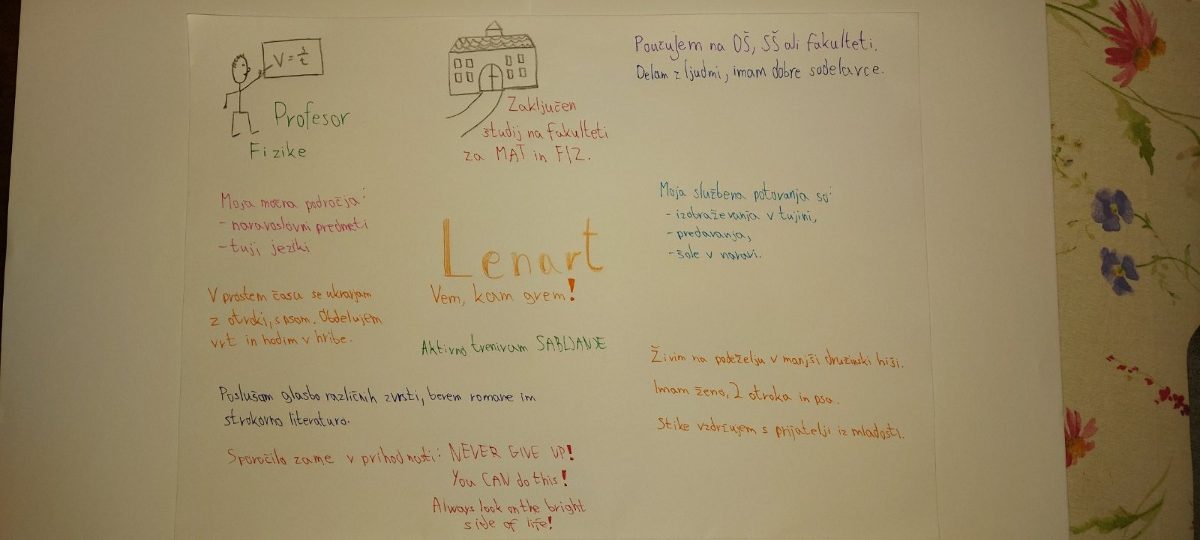 V = s/t
Profesor
Fizike
Zaključen
študij na fakulteti
za MAT in FIZ.
Poučujem na OŠ, SŠ ali fakulteti.
Delam z ljudmi, imam dobre sodelavce.
Moja močna področja:
- naravoslovni predmeti
- tuji jeziki
Moja službena potovanja so:
- izobraževanja v tujini,
- predavanja,
- šole v naravi.
Lenart
Vem, kam grem!
V prostem času se ukvarjam
z otroki, s psom. Obdelujem
vrt in hodim v hribe.
Aktivno treniram SABLJANJE
Živim na podeželju v manjši družinski hiši.
Imam ženo, 2 otroka in psa.
Stike vzdržujem s prijatelji iz mladosti.
Poslušam glasbo različnih zvrsti, berem romane in
strokovno literaturo.
Sporočilo zame v prihodnosti: NEVER GIVE UP!
You CAN do this!
Always look on the bright
side of life!